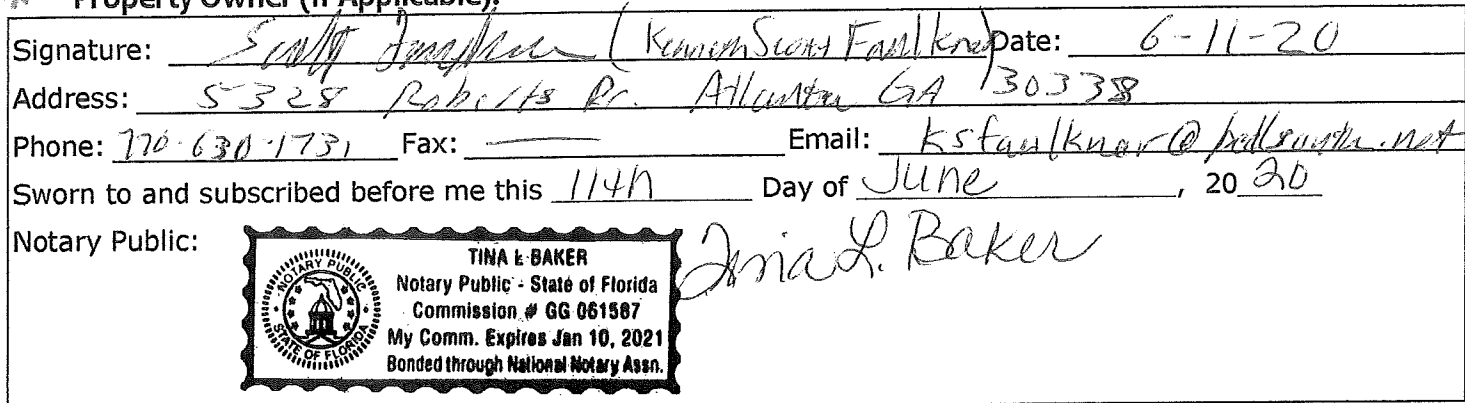 Property Owner (if Applicable):
Signature: Scott Faulkner (Kenneth Scott Faulkner) Date: 6-11-20
Address: 5328 Roberts Dr. Atlanta GA 30338
Phone: 770-630-1731 Fax: — Email: ksfaulkner@bellsouth.net
Sworn to and subscribed before me this 11th Day of June, 2020
Notary Public: Tina L. Baker
TINA L BAKER
Notary Public - State of Florida
Commission # GG 061587
My Comm. Expires Jan 10, 2021
Bonded through National Notary Assn.
NOTARY PUBLIC
STATE OF FLORIDA